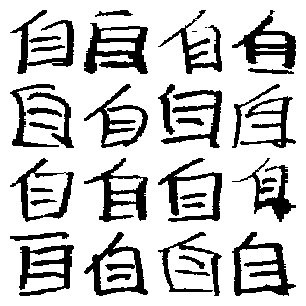 自自自自
自自自自
自自自自
自自自自